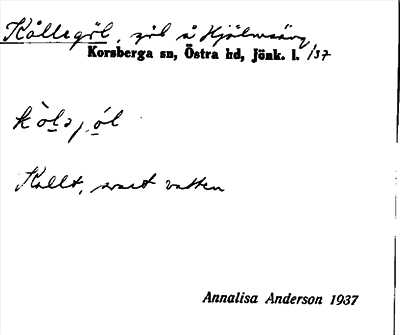 Kållegöl, göl å Hjälmsäng
Korsberga sn, Östra hd, Jönk. l. 137
Kallt, svart vatten
Annalisa Anderson 1937